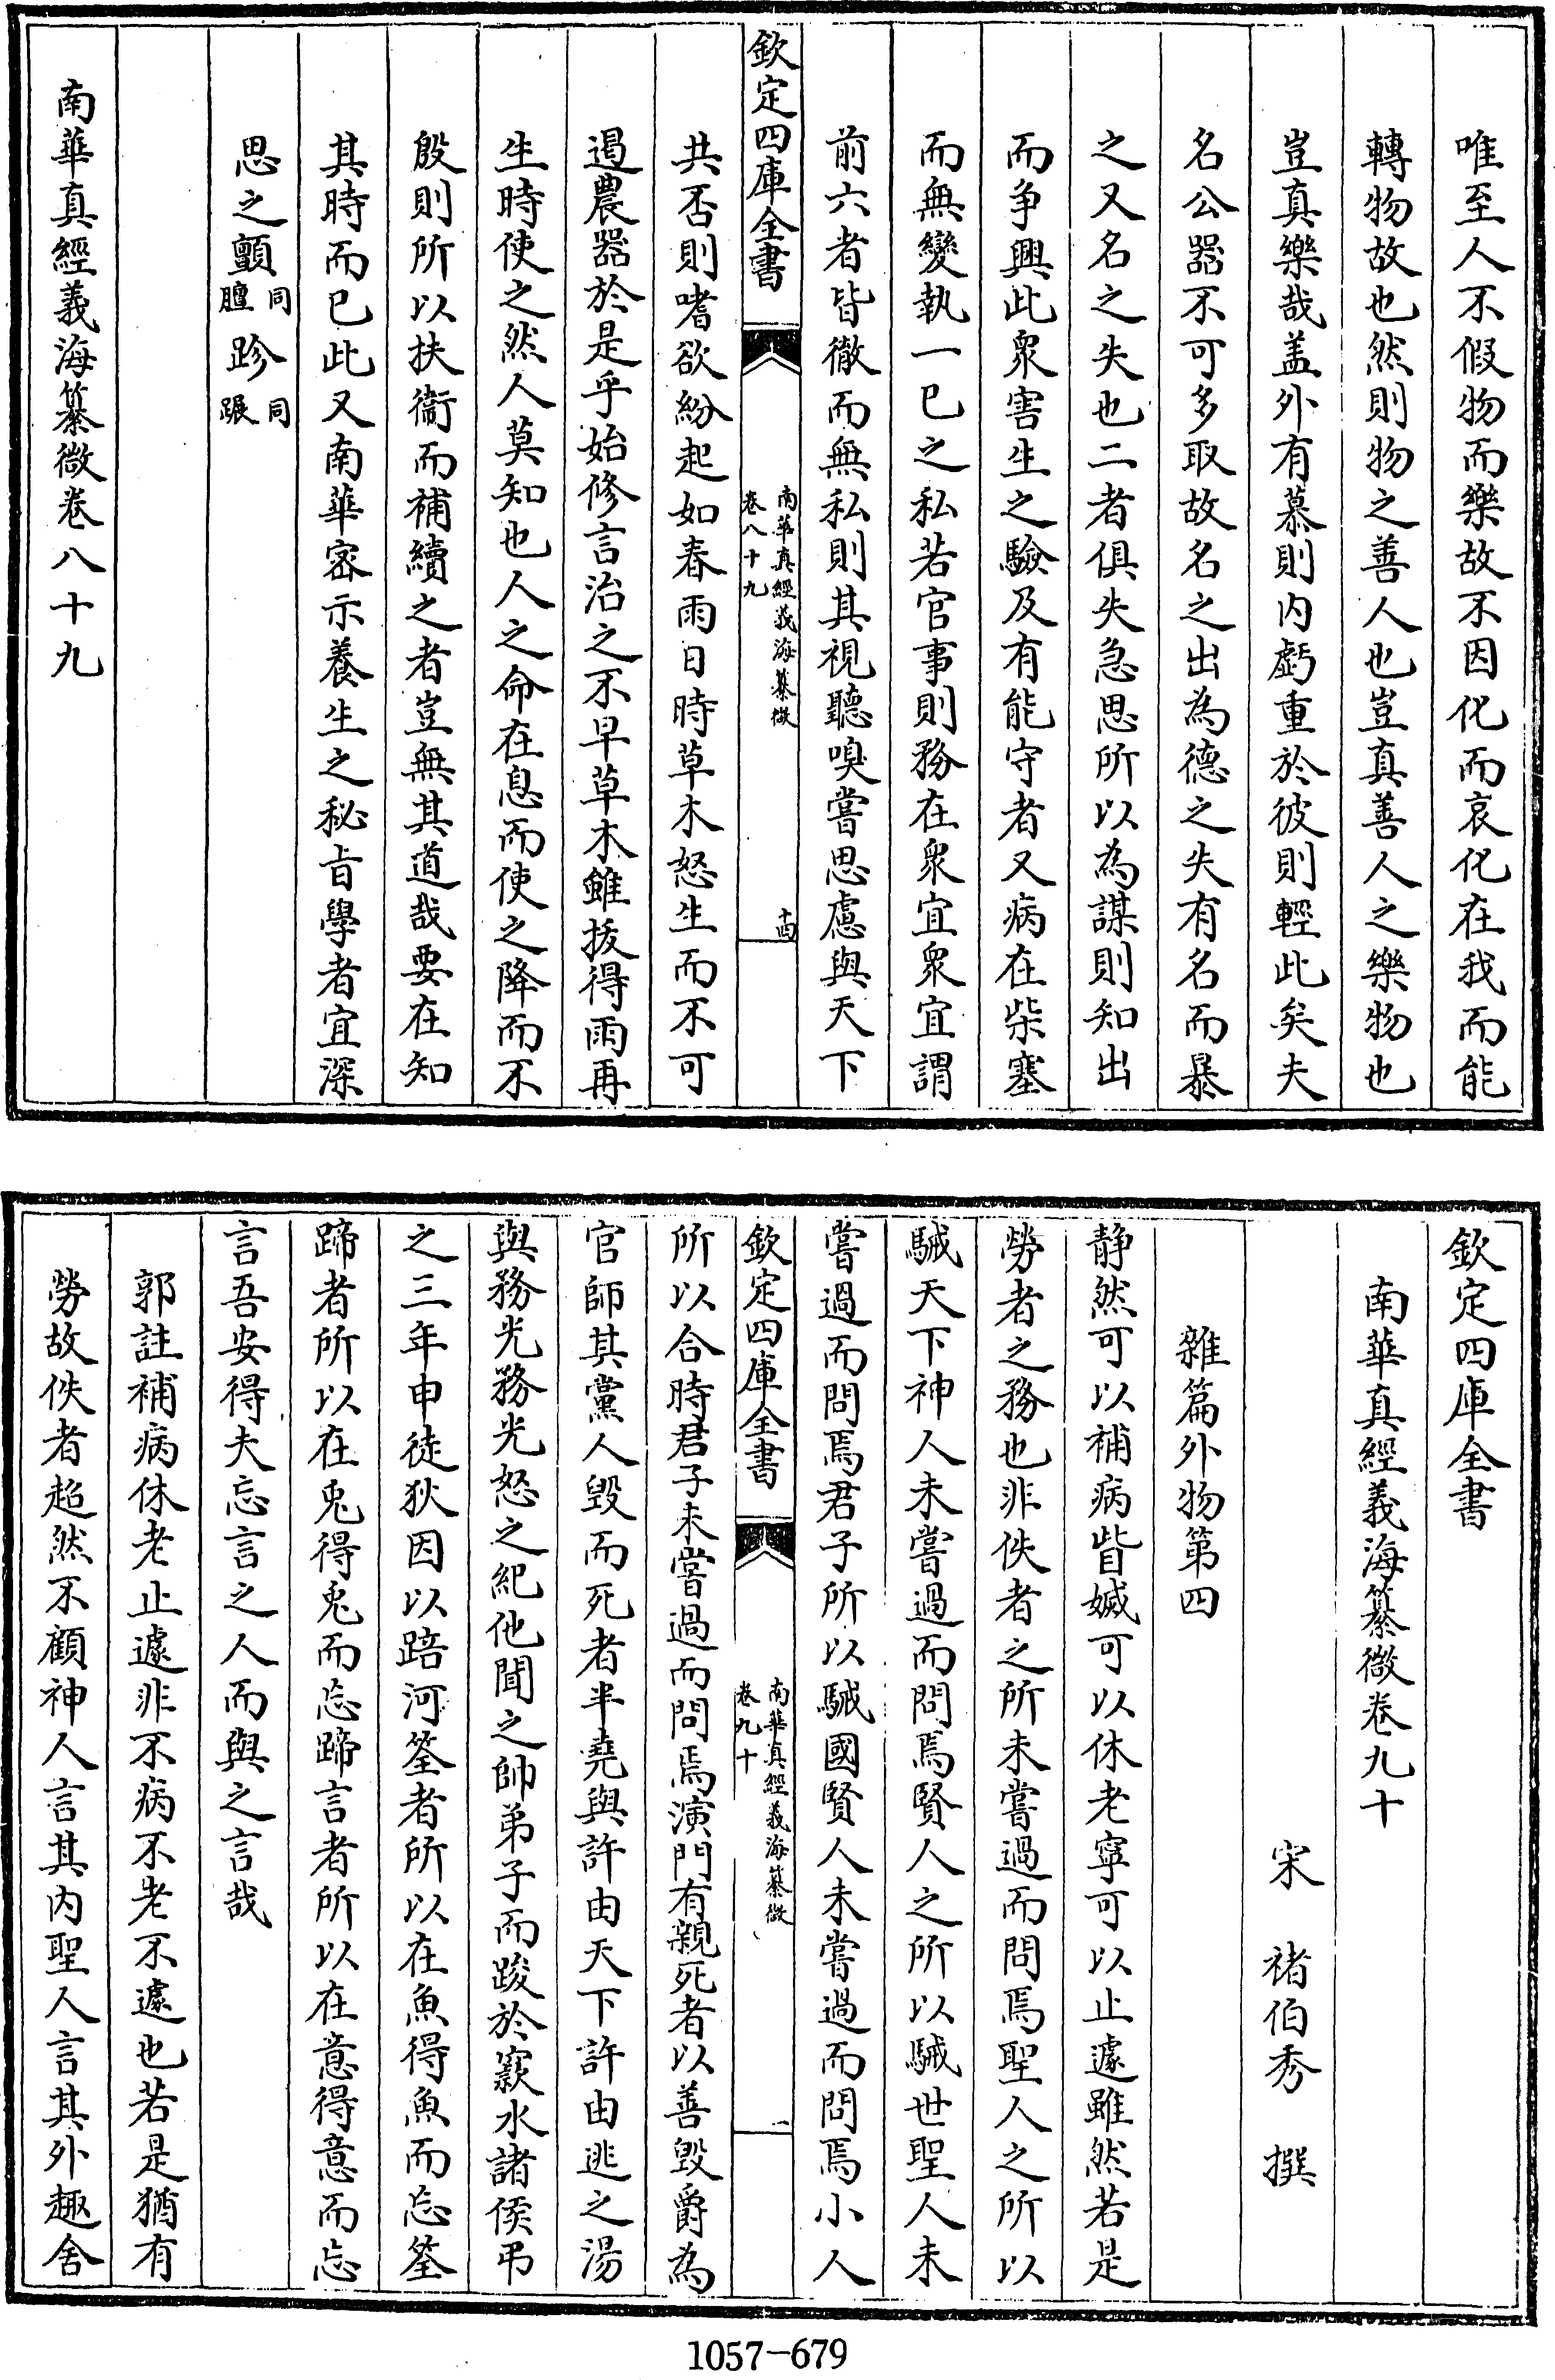 唯至人不假物而樂故不因化而哀化在我而能
轉物故也然則物之善人也豈真善人之樂物也
豈真樂哉盖外有慕則内虧重於彼則輕此矣夫
名公器不可多取故名之出為德之失有名而暴
之又名之失也二者俱失急思所以為謀則知出
而争興此衆害生之驗及有能守者又病在柴塞
而無變執一已之私若官事則務在衆宜衆宜謂
前六者皆徹而無私則其視聽嗅嘗思慮與天下
欽定四庫全書
南華真經義海纂微
卷八十九
十四
共否則嗜欲紛起如春雨日時草木怒生而不可
遏農器於是乎始修言治之不早草木雖拔得雨再
生時使之然人莫知也人之命在息而使之降而不
殷則所以扶衞而補續之者豈無其道哉要在知
其時而已此又南華密示養生之秘旨學者宜深
思之顫同膻跈同蹍
南華真經義海纂微卷八十九
欽定四庫全書
南華真經義海纂微卷九十
宋 褚伯秀 撰
雜篇外物第四
静然可以補病眥㓕可以休老寧可以止遽雖然若是
勞者之務也非佚者之所未嘗過而問焉聖人之所以
駴天下神人未嘗過而問焉賢人之所以駴世聖人未
嘗過而問焉君子所以駴國賢人未嘗過而問焉小人
欽定四庫全書
南華真經義海纂微
卷九十
一
所以合時君子未嘗過而問焉演門有親死者以善毁爵為
官師其黨人毁而死者半堯與許由天下許由逃之湯
與務光務光怒之紀他聞之帥弟子而踆於窾水諸侯弔
之三年申徒狄因以踣河筌者所以在魚得魚而忘筌
蹄者所以在兎得兎而忘蹄言者所以在意得意而忘
言吾安得夫忘言之人而與之言哉
郭註補病休老止遽非不病不老不遽也若是猶有
勞故佚者超然不顧神人言其内聖人言其外趣舍
1057-679